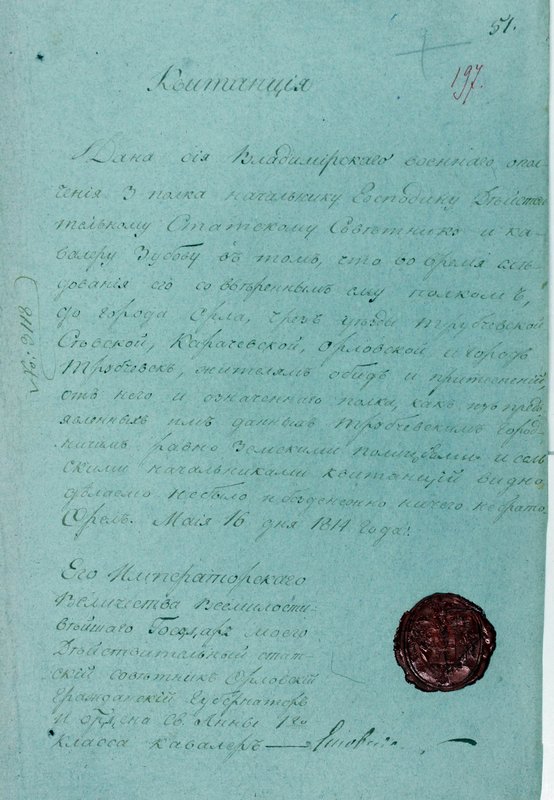 51.
197.
Квитанція
Дана сія Владимірскаго военнаго опол
ченія 3 полка начальнику Господину Дѣйстви
тѣльному Статскому Совѣтнику и ка-
валеру Зубову въ томъ, что во время слѣ-
дованія его со ввѣреннымъ ему полкомъ,
до города Орла, чрезъ уѣзды Трубчевской
Сѣвской, Карачевской, Орловской и городъ
Трубчевскъ, жителямъ обидъ и притесненій
отъ него и означеннаго полка, какъ изъ предъ
явленныхъ имъ данныхъ Трубчевскимъ Город-
ничимъ равно Земскими полиціями и сель
скими начальниками квитанцій видно,
дѣлаемо небыло и безденежно ничего небрато
Орелъ. Маія 16 дня 1814 года.
Его Императорскаго
Величества Всемилости-
вѣйшаго Государя моего
Дѣйствительный стат-
скій совѣтникъ Орловскій
Гражданскій Губернаторъ
и ордена Св. Анны 1го
класса кавалеръ —
№: 9118